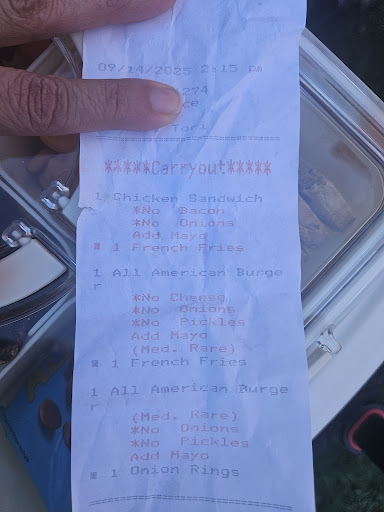 09/14/2025 2:15 pm
274
ce
Tori
*****Carryout*****
1 Chicken Sandwich
*No Bacon
*No Onions
Add Mayo
1 French Fries
1 All American Burge
r
*No Cheese
*No Onions
*No Pickles
Add Mayo
(Med. Rare)
1 French Fries
1 All American Burge
r
(Med. Rare)
*No Onions
*No Pickles
Add Mayo
1 Onion Rings